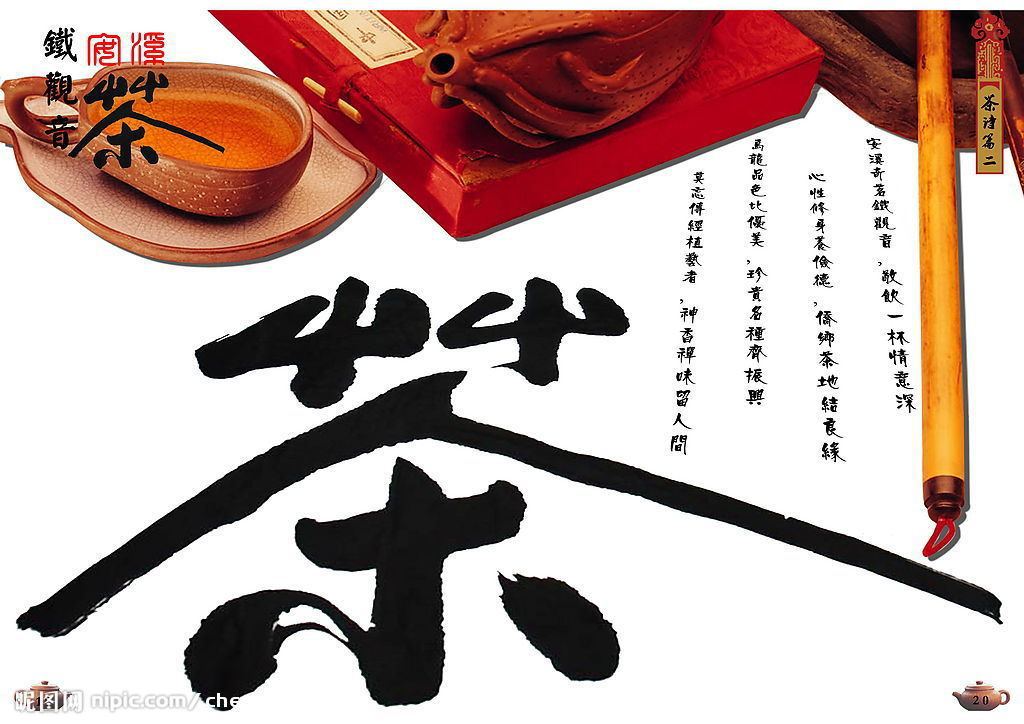 鐵觀音
安溪
茶
茶诗篇二
安溪奇茗鐵觀音,敬飲一杯情意深
心性修身養儉德,僑鄉茶地結良緣
烏龍品色比優美,珍貴名種齊振興
莫忘傳經植藝者,神香禪味留人間
茶
昵图网 nipic.com/che
20